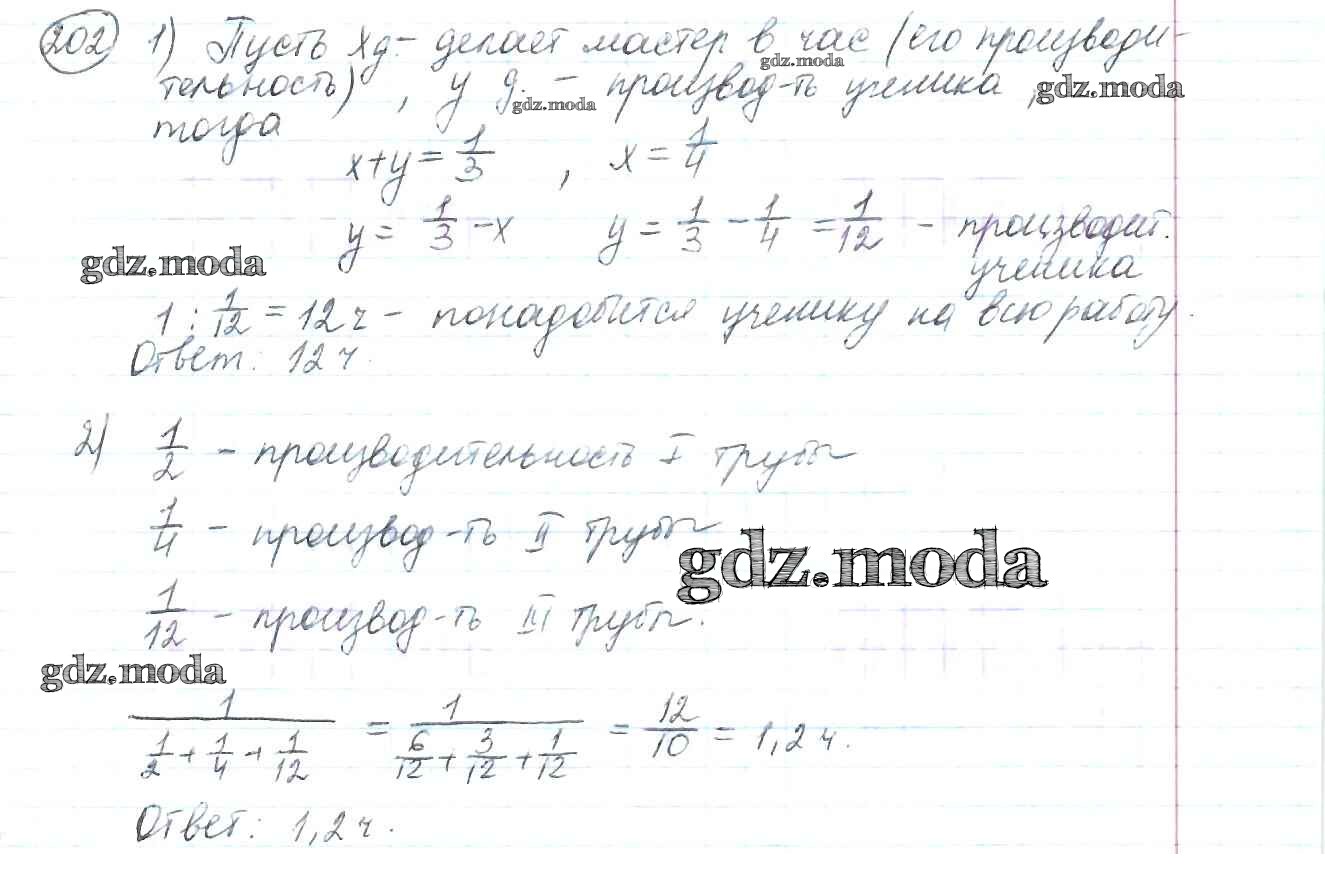 202 1) Пусть x д. – делает мастер в час (его производи-
gdz.moda
тельность), y д. – производ-ть ученика,
gdz.moda gdz.moda
тогда
x+y = 1/3 , x = 1/4
y = 1/3 - x y = 1/3 - 1/4 = 1/12 – производит.
ученика
gdz.moda
1 : 1/12 = 12 ч – понадобится ученику на всю работу.
Ответ: 12 ч.
2) 1/2 – производительность I трубы
1/4 – производ-ть II трубы
gdz.moda
1/12 – производ-ть III трубы.
gdz.moda
1/(1/2 + 1/4 + 1/12) = 1/(6/12 + 3/12 + 1/12) = 12/10 = 1,2 ч.
Ответ: 1,2 ч.